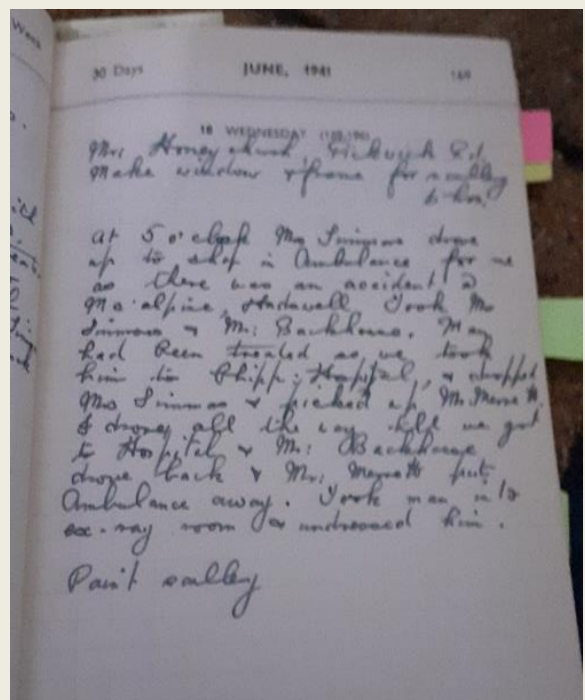 30 Days JUNE, 1941 169
18 WEDNESDAY (169-196)
Mr: Honeychurch Pickwick Rd.
Make window & frame for scullery
6 hrs:
at 5 o'clock Mrs Simmons drove
up to shop in Ambulance for me
as there was an accident a
Mc alpine, Hudswell Took Mrs
Simmons & Mr: Backhouse. Man
had been treated so we took
him to Chipp: Hospital, & dropped
Mrs Simmons & picked up Mr. Merrett.
I drove all the way till we got
to Hospital & Mr: Backhouse
drove back & Mr: Merrett put
Ambulance away. Took man into
ex-ray room & undressed him.
Paint scullery